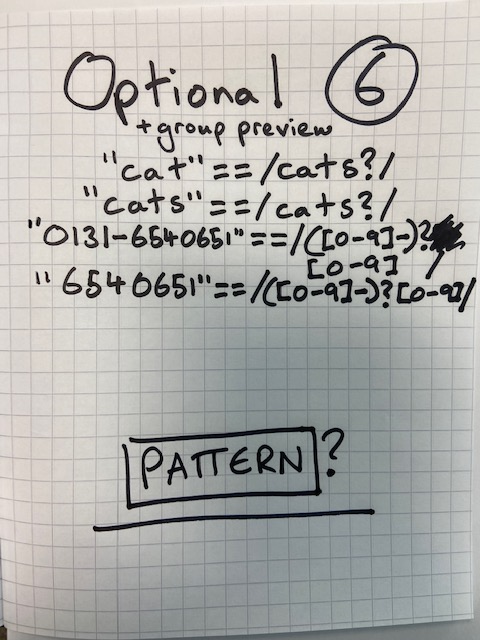 Optional 6
+ group preview
"cat" == /cats?/
"cats" == /cats?/
"0131-6540651" == /([0-9]-)?
[0-9] /
"6540651" == /([0-9]-)?[0-9]/
PATTERN?